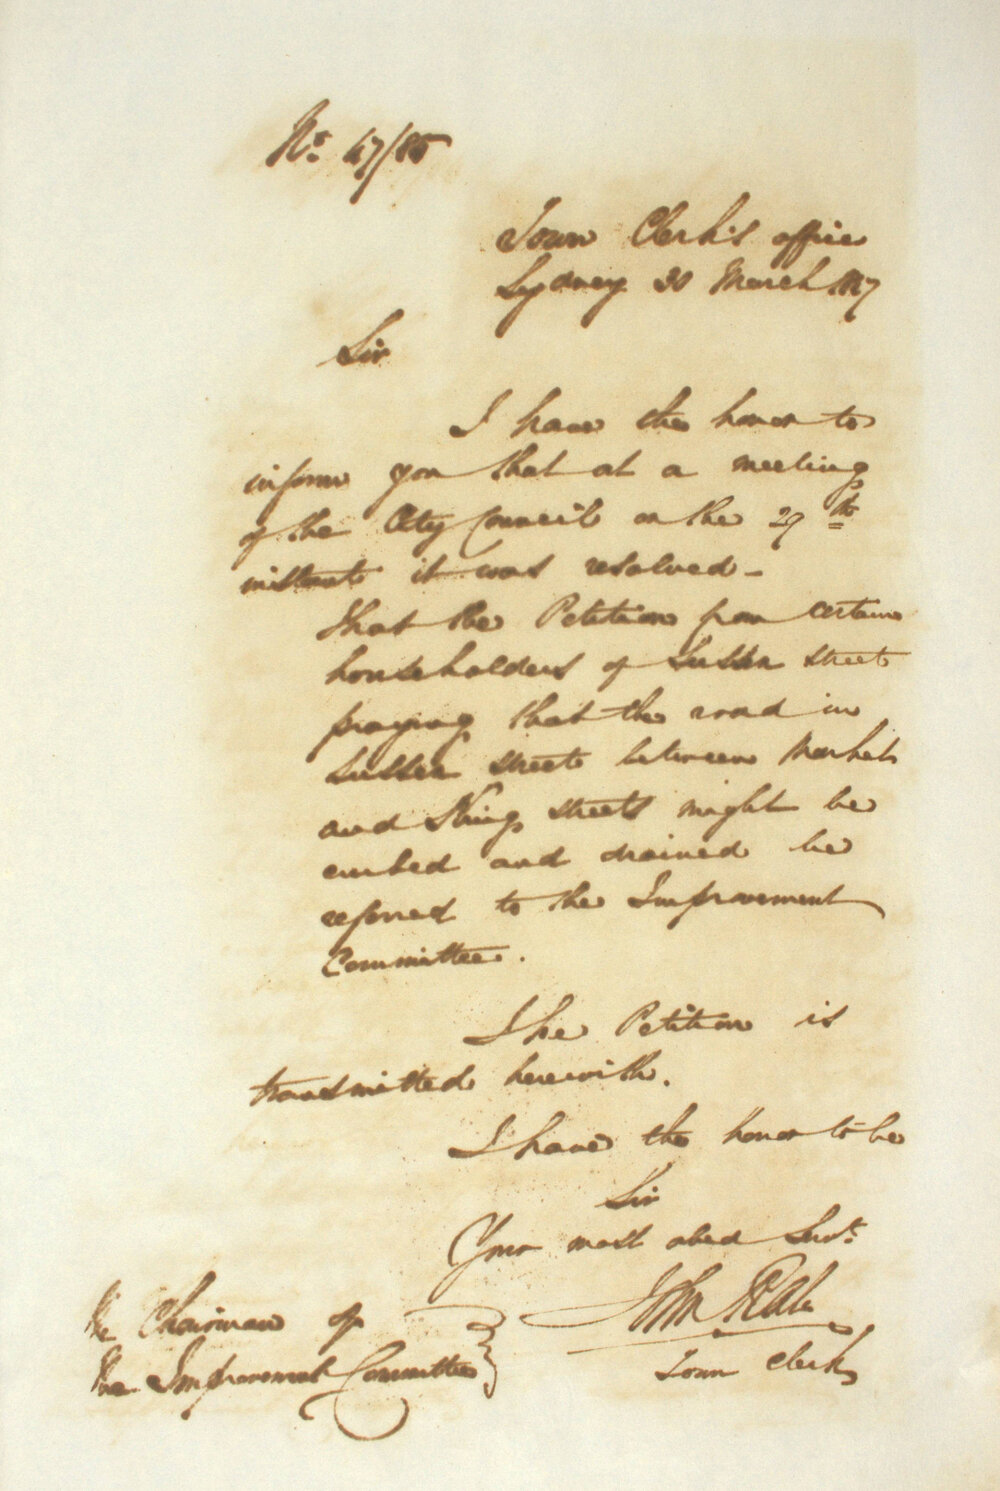 No. 47/86
Town Clerk's office
Sydney 30 March 1847
Sir
I have the honor to
inform you that at a meeting
of the City Council on the 29th
instant it was resolved -
That the Petition from certain
householders of Sussex street
praying that the road in
Sussex street between Market
and King streets might be
curbed and drained be
referred to the Improvement
Committee.
The Petition is
transmitted herewith.
I have the honor to be
Sir
Your most obed Servt.
John
Town Clerk
The Chairman of
the Improvement Committee